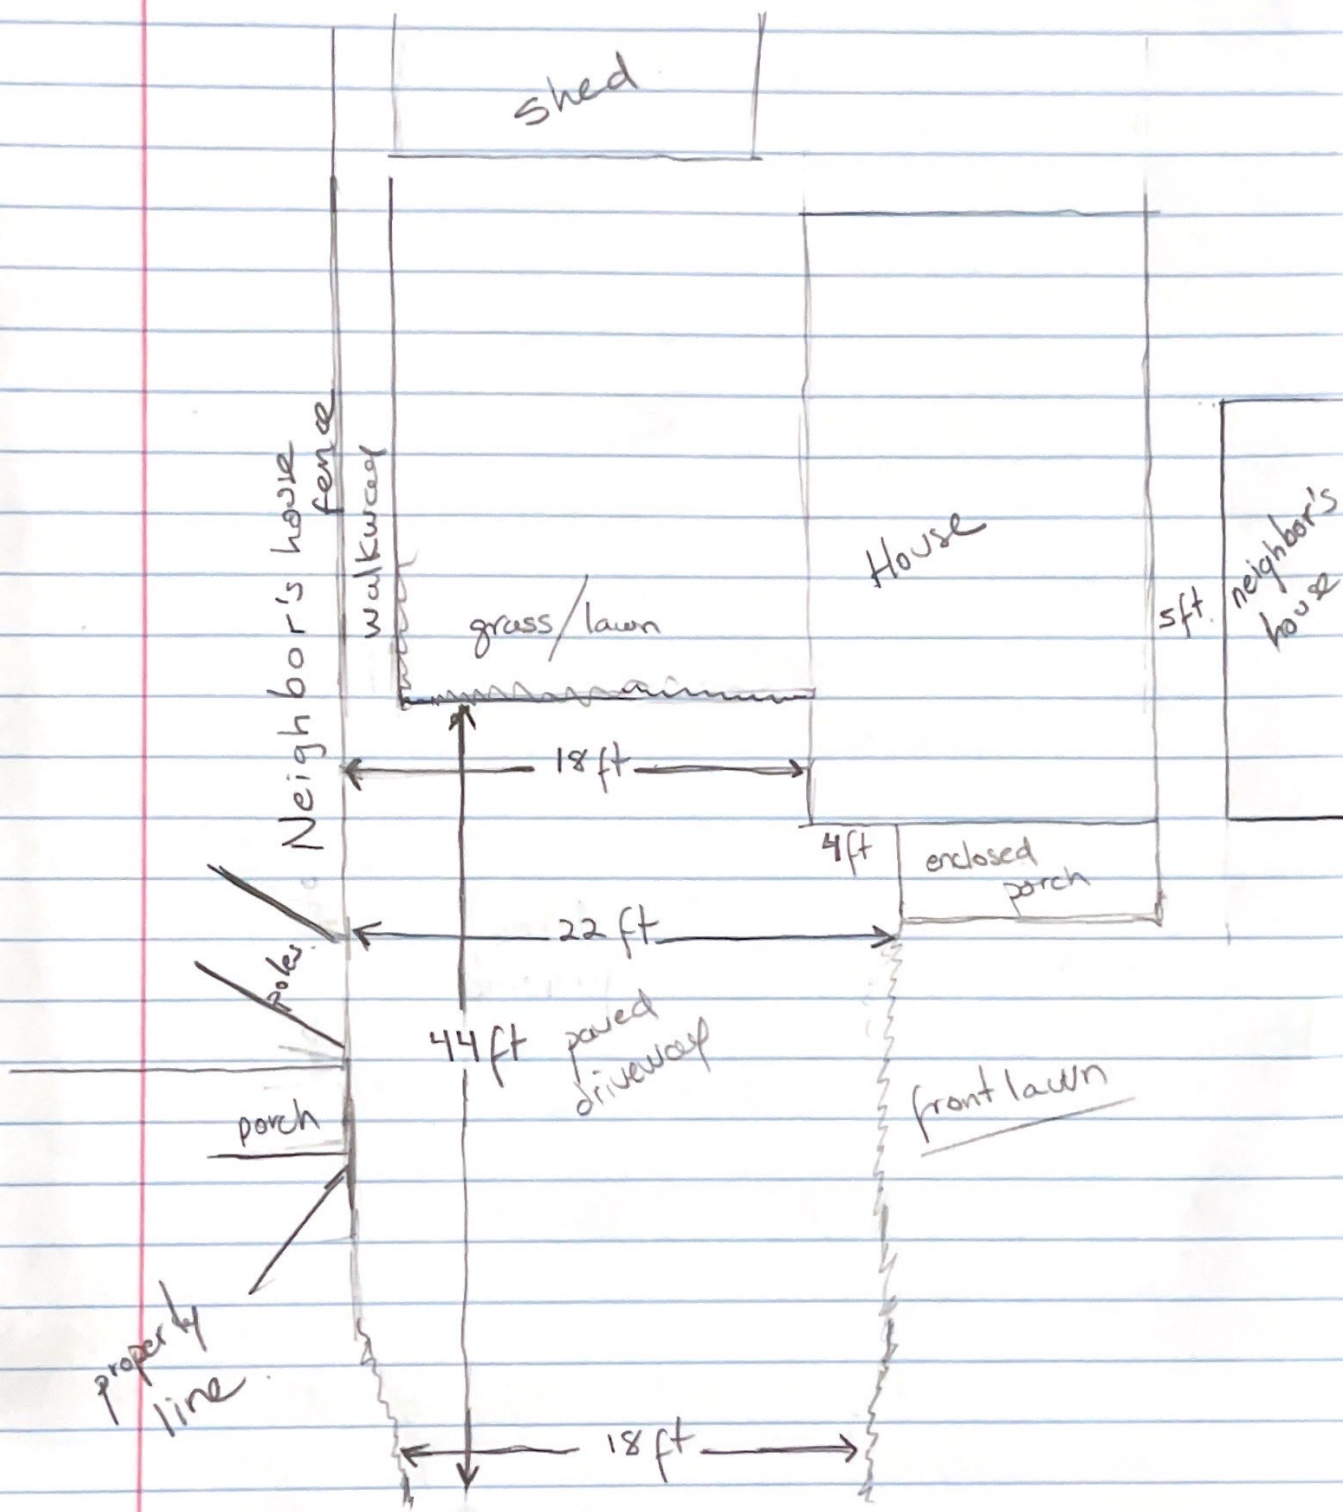 shed
Neighbor's house
fence
walkway
grass/lawn
House
5ft.
neighbor's
house
18ft
4ft
enclosed
porch
22 ft
poles
44ft
paved
driveway
front lawn
porch
property
line
18ft